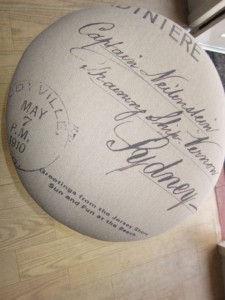 D'INTERE
Captain Neidenstein
Training Ship Vernon
Sydney
D.VILLE
MAY
7
P.M.
1910
Greetings from the Jersey Shore
Sun and Fun at the Beach